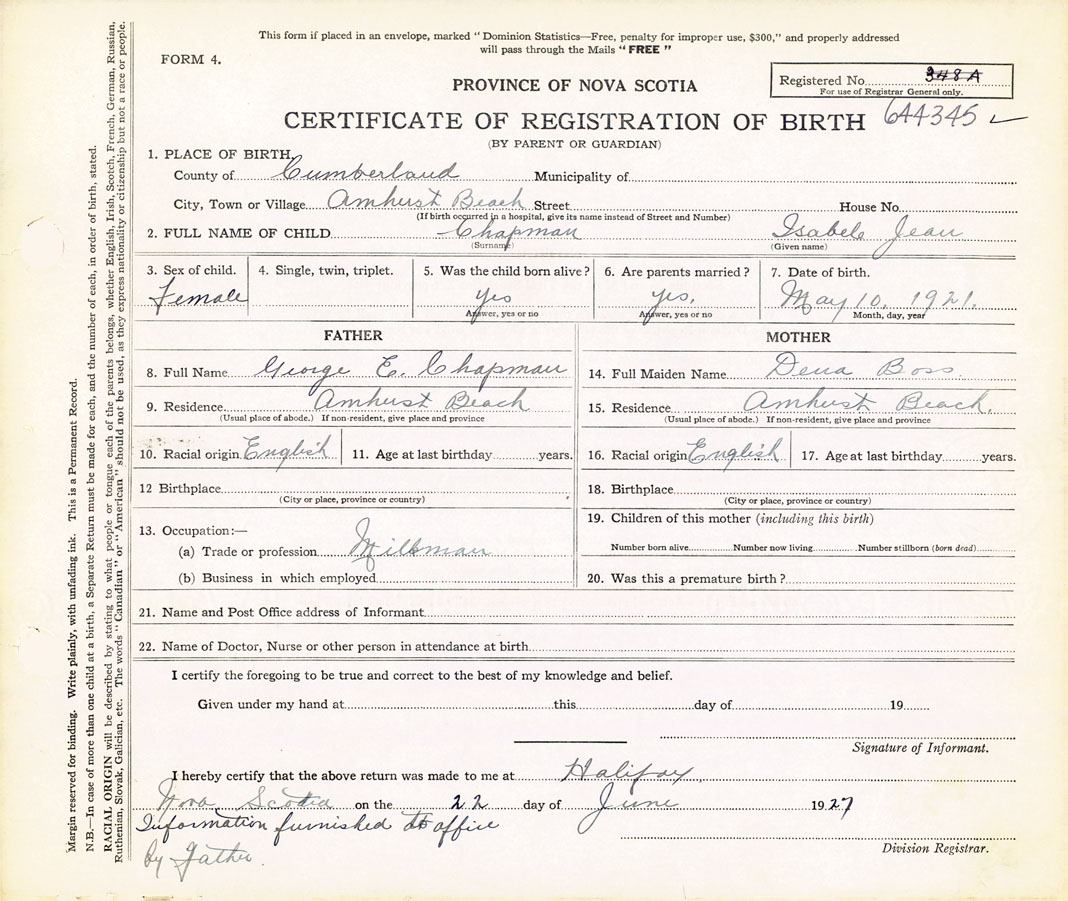 This form if placed in an envelope, marked “ Dominion Statistics—Free, penalty for improper use, $300,” and properly addressed
will pass through the Mails “ FREE ”
FORM 4.
Registered No. 348 A
For use of Registrar General only.
PROVINCE OF NOVA SCOTIA
CERTIFICATE OF REGISTRATION OF BIRTH 644345
(BY PARENT OR GUARDIAN)
1. PLACE OF BIRTH.
County of Cumberland Municipality of
City, Town or Village Amhurst Beach Street House No.
(If birth occurred in a hospital, give its name instead of Street and Number)
2. FULL NAME OF CHILD Chapman Isabele Jean
(Surname) (Given name)
3. Sex of child. 4. Single, twin, triplet. 5. Was the child born alive? 6. Are parents married? 7. Date of birth.
Female yes yes, May 10, 1921.
Answer, yes or no Answer, yes or no Month, day, year
FATHER MOTHER
8. Full Name George E. Chapman 14. Full Maiden Name Dena Boss
9. Residence Amhurst Beach 15. Residence Amhurst Beach.
(Usual place of abode.) If non-resident, give place and province (Usual place of abode.) If non-resident, give place and province
10. Racial origin English 11. Age at last birthday years. 16. Racial origin English 17. Age at last birthday years.
12 Birthplace 18. Birthplace
(City or place, province or country) (City or place, province or country)
13. Occupation:— 19. Children of this mother (including this birth)
(a) Trade or profession Millman Number born alive Number now living Number stillborn (born dead)
(b) Business in which employed 20. Was this a premature birth?
21. Name and Post Office address of Informant
22. Name of Doctor, Nurse or other person in attendance at birth
I certify the foregoing to be true and correct to the best of my knowledge and belief.
Given under my hand at this day of 19
Signature of Informant.
I hereby certify that the above return was made to me at Halifax
Nova Scotia on the 22 day of June 1927
Information furnished at office
by Father.
Division Registrar.
Margin reserved for binding. Write plainly, with unfading ink. This is a Permanent Record.
N.B.—In case of more than one child at a birth, a Separate Return must be made for each, and the number of each, in order of birth, stated.
RACIAL ORIGIN will be described by stating to what people or tongue each of the parents belongs, whether English, Irish, Scotch, French, German, Russian,
Ruthenian, Slovak, Galician, etc. The words “ Canadian ” or “ American ” should not be used, as they express nationality or citizenship but not a race or people.